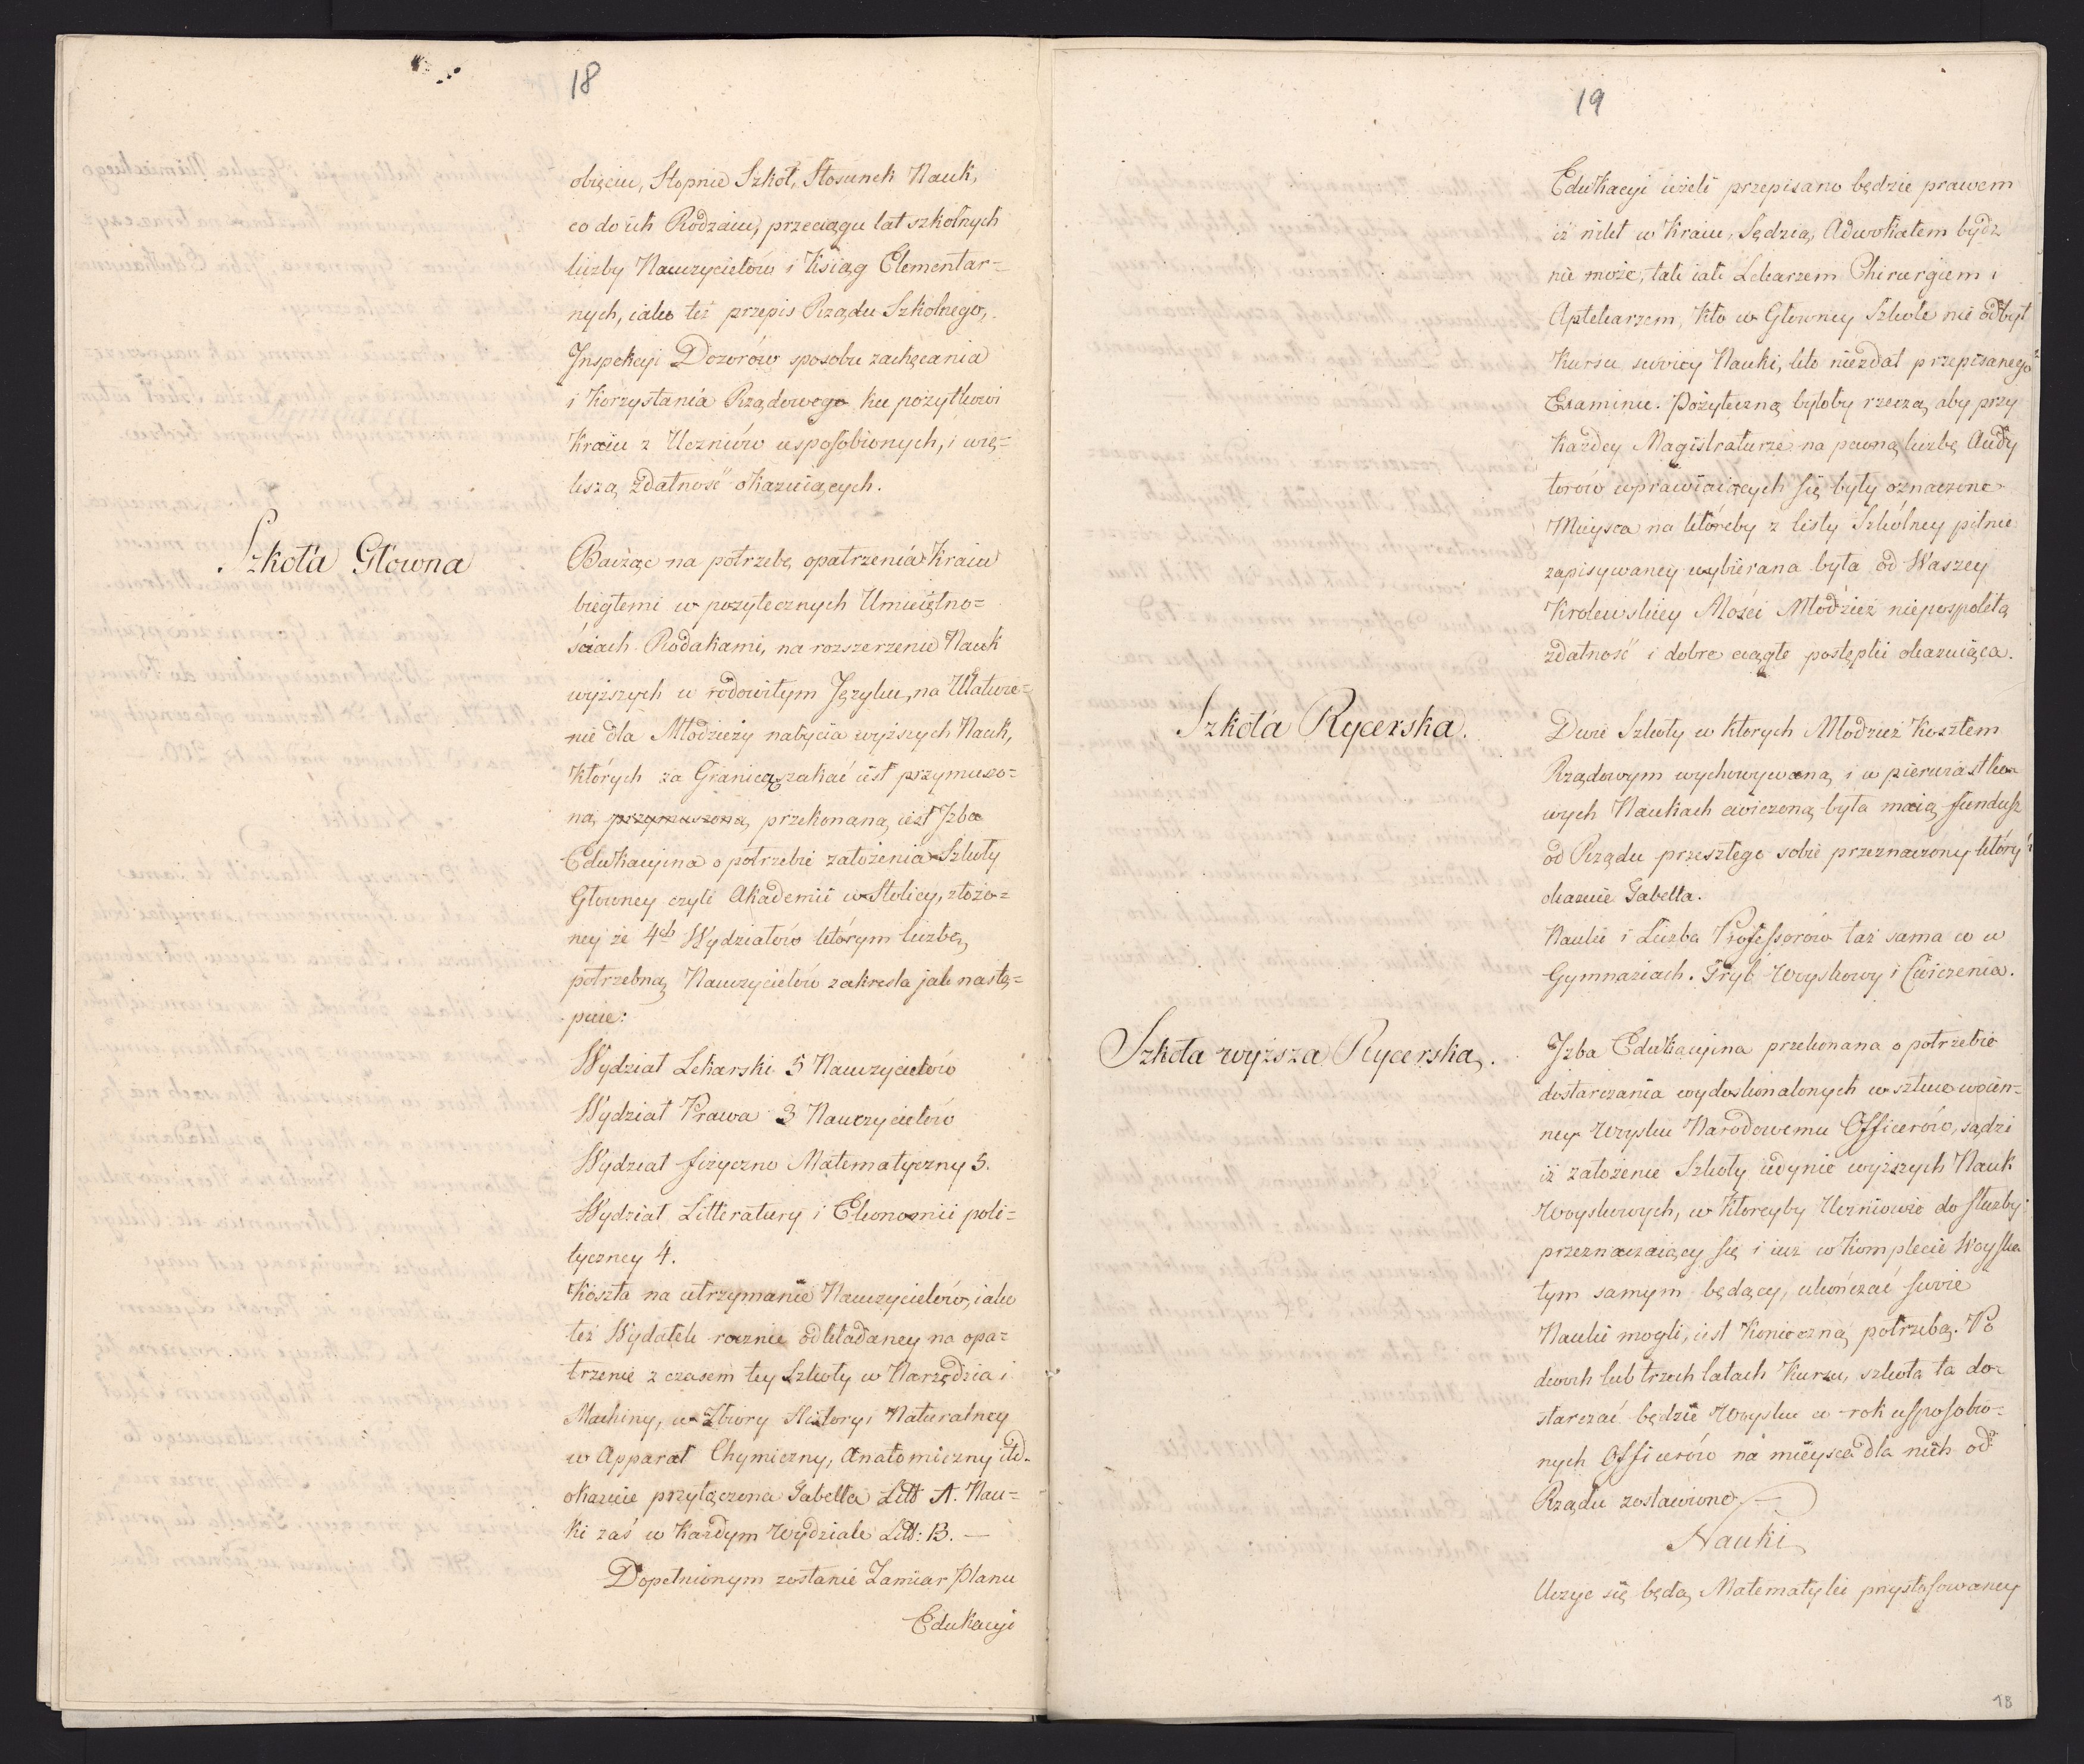 18
obięciu, Stopnie Szkół, Stosunek Nauk,
co do ich Rodzaiu, przeciągu lat szkolnych
liczby Nauczycielów i Ksiąg Elementar=
nych, iako też przepis Rządu Szkolnego,
Inspekcyi Dozorów sposobu zachęcania
i Korzystania Rządowego ku pożytkowi
Kraiu z Uczniów usposobionych, i wię=
kszą zdatność okazuiących.
Szkoła Główna
Bacząc na potrzebę opatrzenia Kraiu
biegłemi w pożytecznych Umieiętno=
ściach Rodakami, na rozszerzenie Nauk
wyższych w rodowitym Języku, na Ułatwie=
nie dla Młodzieży nabycia wyższych Nauk,
Których za Granicą szukać iest przymuszo=
ną, przymuszoną, przekonaną iest Jzba
Edukacyina o potrzebie założenia Szkoły
Głowney czyli Akademii w Stolicy, złożo=
ney ze 4ch Wydziałów którym liczbę
potrzebną Nauczycielów zakreśla jak nastę=
puie:
Wydział Lekarski 5 Nauczycielów
Wydział Prawa 3 Nauczycielów
Wydział fizyczno Matematyczny 5.
Wydział Litteratury i Ekonomii poli=
tyczney 4.
Koszta na utrzymanie Nauczycielów, iako
też Wydatek rocznie odkładaney na opa=
trzenie z czasem tey Szkoły w Narzędzia i
Machiny, w Zbiory History Naturalney
w Apparat Chymiczny, Anatomiczny itd.
okazuie przyłączona Tabella Litt A. Nau=
ki zaś w Każdym Wydziale Litt: B. —
Dopełnionym zostanie Zamiar Planu
Edukacyi
19
Edukacyi ieżeli przepisano będzie prawem
iż nikt w Kraiu, Sędzią, Adwokatem bydź
nie może, tak iak Lekarzem Chirurgiem i
Aptekarzem, Kto w Głowney Szkole nie odbył
Kursu swoiey Nauki, kto niezdał przepisanego
Examinu. Pożyteczną byłoby rzeczą, aby przy
Każdey Magistraturze na pewną liczbę Audy
torów wprawiaiących się były oznaczone
Mieysca na któreby z listy Szkólney pilnie
zapisywaney wybierana była od Waszey
Krolewskiey Mości Młodzież niepospolitą
zdatność i dobre ciągłe postępki okazuiąca.
Szkoła Rycerska.
Dwie Szkoły w ktorych Młodzież Kosztem
Rządowym wychowywaną i w pierwiastko
wych Naukach ćwiczoną była maią fundusz
od Rządu przeszłego sobie przeznaczony który
okazuie Tabella.
Nauki i Liczba Professorów taż sama co w
Gymnaziach. Tryb Woyskowy i Ćwiczenia.
Szkoła wyższa Rycerska.
Jzba Edukacyina przekonana o potrzebie
dostarczania wydoskonalonych w sztuce woien=
ney Woysku Narodowemu Officerów, sądzi
iż założenie Szkoły iedynie wyższych Nauk
Woyskowych, w Ktoreyby Uczniowie do służby
przeznaczaiący się i iuż w Komplecie Woyska
tym samym będący, ukończać swoie
Nauki mogli, iest Konieczną potrzebą. Po
dwoch lub trzech latach Kursu, szkoła ta do=
starczać będzie Woysku co rok usposobio=
nych Officerów na mieysca dla nich od
Rządu zostawione. —
Nauki
Uczyc się będą Matematyki przystosowaney
18